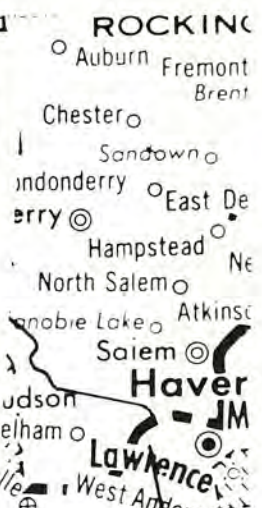 ROCKING
Auburn
Fremont
Brent
Chester
Sandown
ondonderry
East De
erry
Hampstead
Ne
North Salem
Atkinso
anobie Lake
Salem
Haver
udson
M
elham
Lawrence
West And
lle